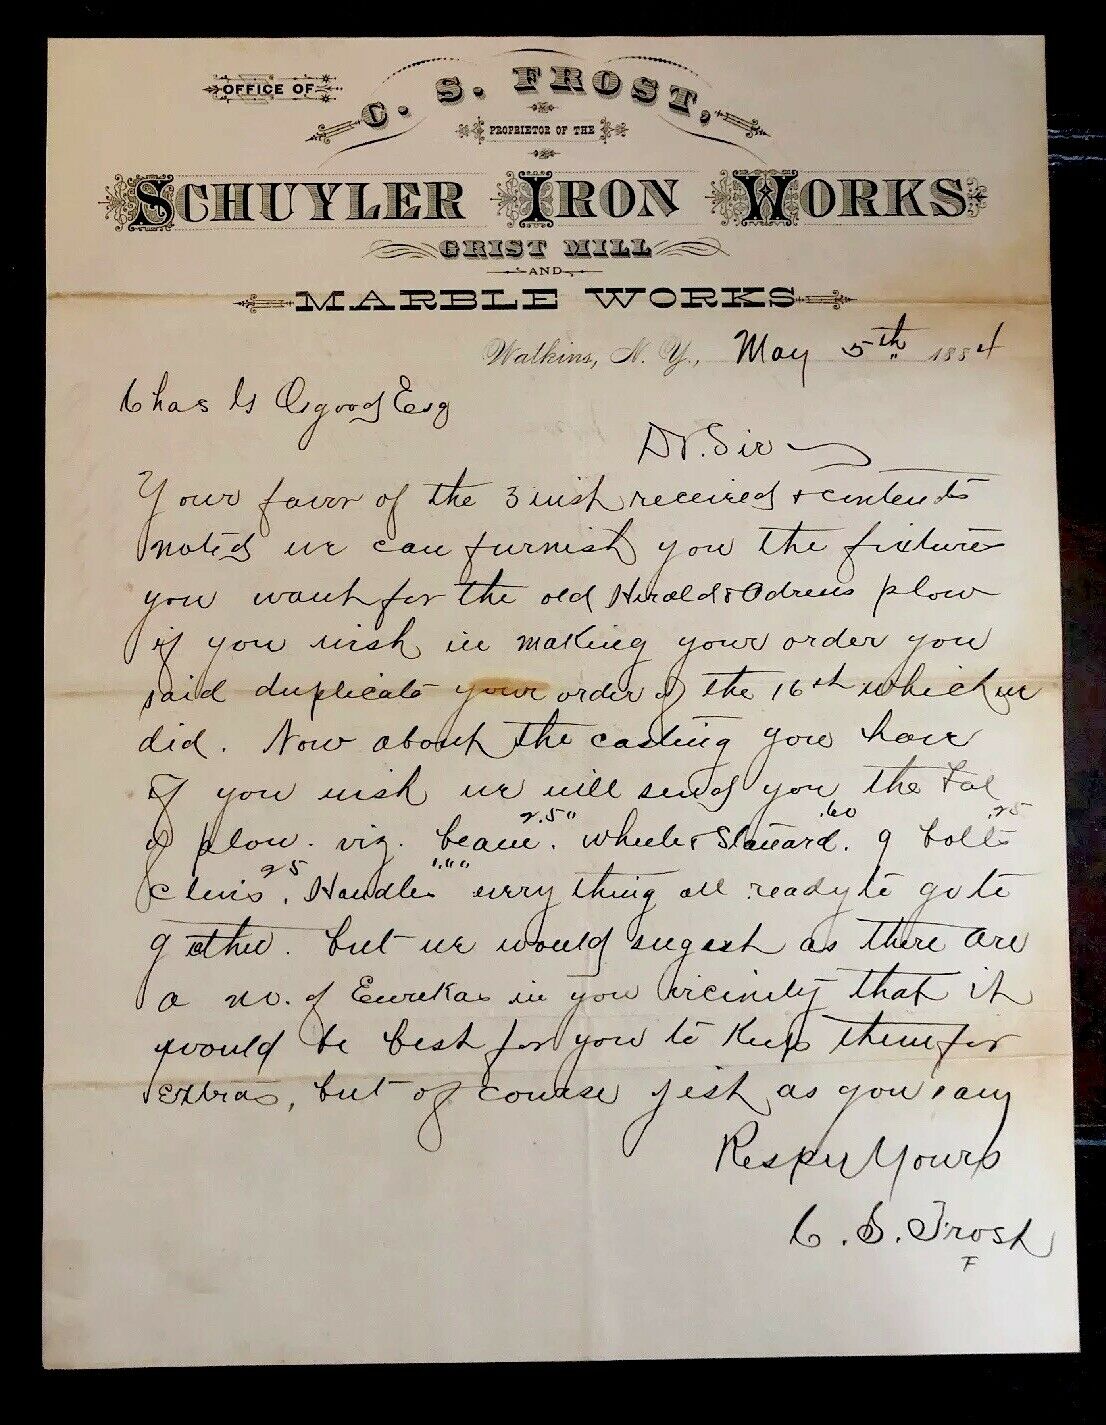 OFFICE OF
C. S. FROST,
PROPRIETOR OF THE
SCHUYLER IRON WORKS
GRIST MILL
AND
MARBLE WORKS
Watkins, N. Y., May 5th 1884
Chas G Osgood Esq
Dr. Sir
Your favor of the 3 inst received & contents
noted we can furnish you the fixtures
you want for the old Herald & plow
if you wish in making your order you
said duplicate your order of the 16th which we
did. Now about the casting you have
if you wish we will send you the
plow. viz. beam. 2.50 wheel & Standard. .60 9 bolts .25
Clevis 25, Handles 1.00 every thing all ready to go to
gether. but we would sugest as there are
a no. of Eurekas in you vicinity that it
would be best for you to Keep them for
extras, but of course jist as you say
Respy Yours
C. S. Frost
F